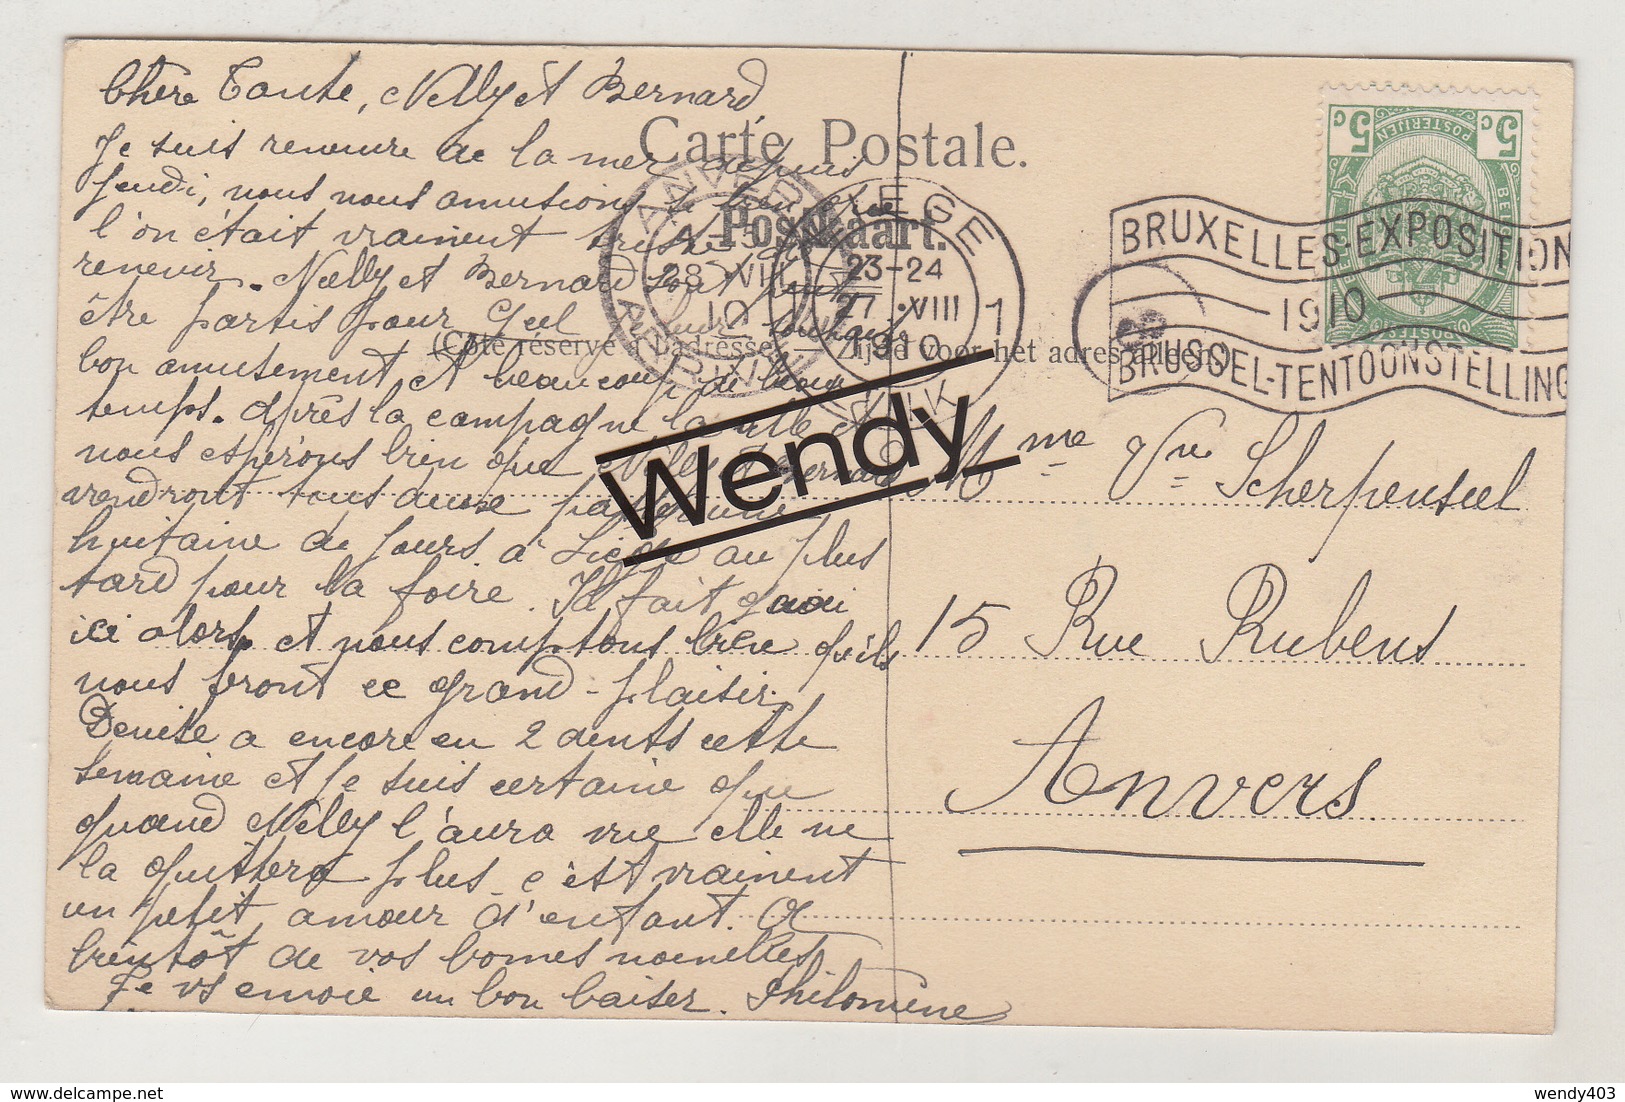 Chère Tante, Nelly et Bernard,
Je suis revenue de la mer depuis
jeudi, nous nous amusions si bien que
l'on était vraiment triste de
revenir. Nelly et Bernard sont peut
être partis pour Geel
bon amusement et beaucoup de beau
temps. après la campagne la ville et
nous espérons bien que Nelly et Bernard
vendront tous deux passer une
huitaine de jours à Liège au plus
tard pour la foire. Il fait quai
ici alors et nous comptons bien qu'ils
nous front ce grand plaisir.
Denise a encore eu 2 dents cette
semaine et je suis certaine que
quand Nelly l'aura vue elle ne
la quittera plus c'est vraiment
un petit amour d'enfant. A
bientôt de vos bonnes nouvelles
Je vs envoie un bon baiser. Philomène
Carte Postale.
Postkaart.
(Côté réservé à l'adresse.) Zijde voor het adres alleen)
ANVERS
4-5
28 VIII
10
ANTWERPEN
LIEGE
23-24
27 VIII
1910
1
LUIK
BRUXELLES-EXPOSITION
1910
BRUSSEL-TENTOONSTELLING
5c 5c
POSTERIJEN
Wendy
Mme Vve Scherpenseel
15 Rue Rubens
Anvers.
wendy403